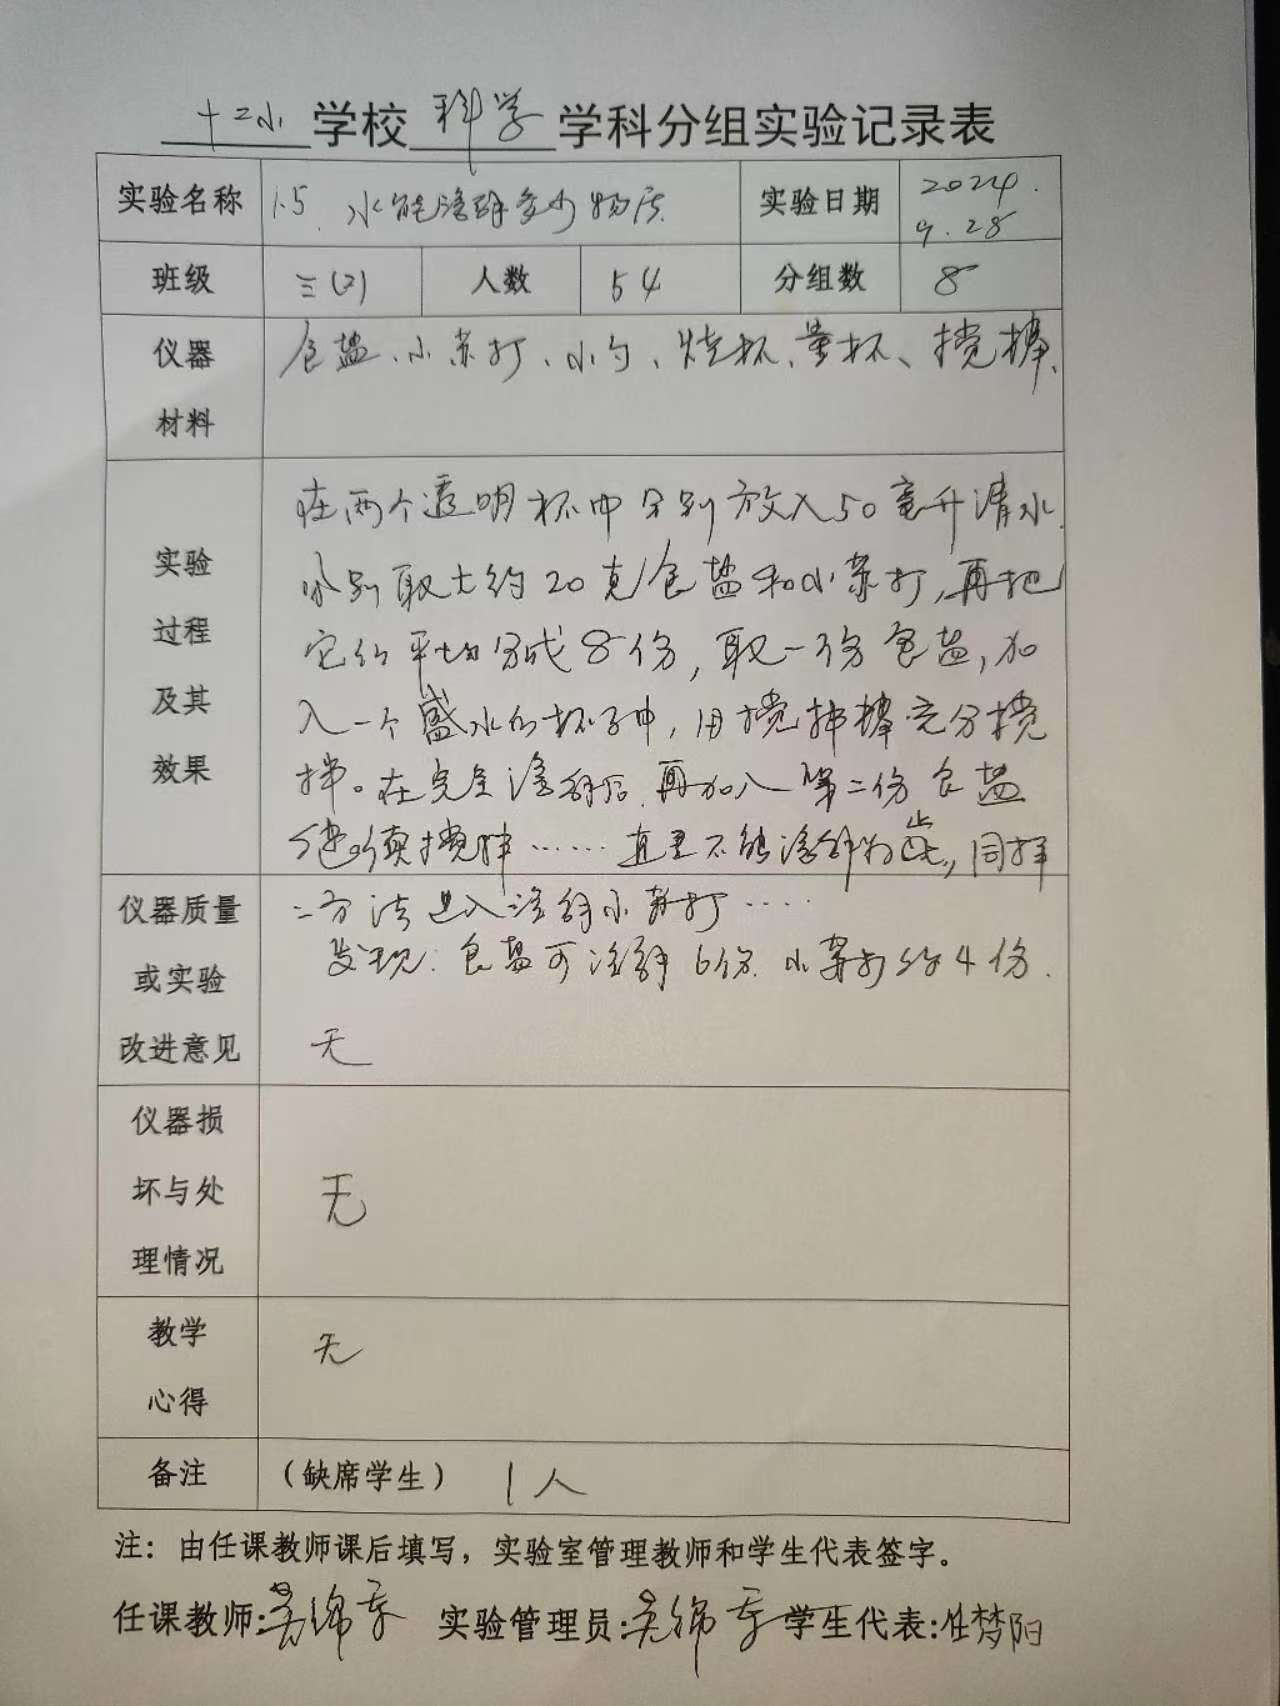 十二小 学校 科学 学科分组实验记录表
实验名称 1.5 水能溶解多少物质 实验日期 2024.9.28
班级 三(2) 人数 54 分组数 8
仪器材料 食盐、小苏打、小勺、烧杯、量杯、搅棒、
实验过程及其效果
在两个透明杯中分别放入50毫升清水.
分别取大约20克食盐和小苏打,再把
它们平均分成8份,取一份食盐,加
入一个盛水的杯子中,用搅拌棒充分搅
拌。在完全溶解后,再加入第二份食盐
继续搅拌……直至不能溶解为止,同样
方法进入溶解小苏打……
发现:食盐可溶解6份.小苏打约4份.
仪器质量或实验改进意见 无
仪器损坏与处理情况 无
教学心得 无
备注 (缺席学生) 1人
注:由任课教师课后填写,实验室管理教师和学生代表签字。
任课教师:吴锦 实验管理员:吴锦 学生代表:任梦阳